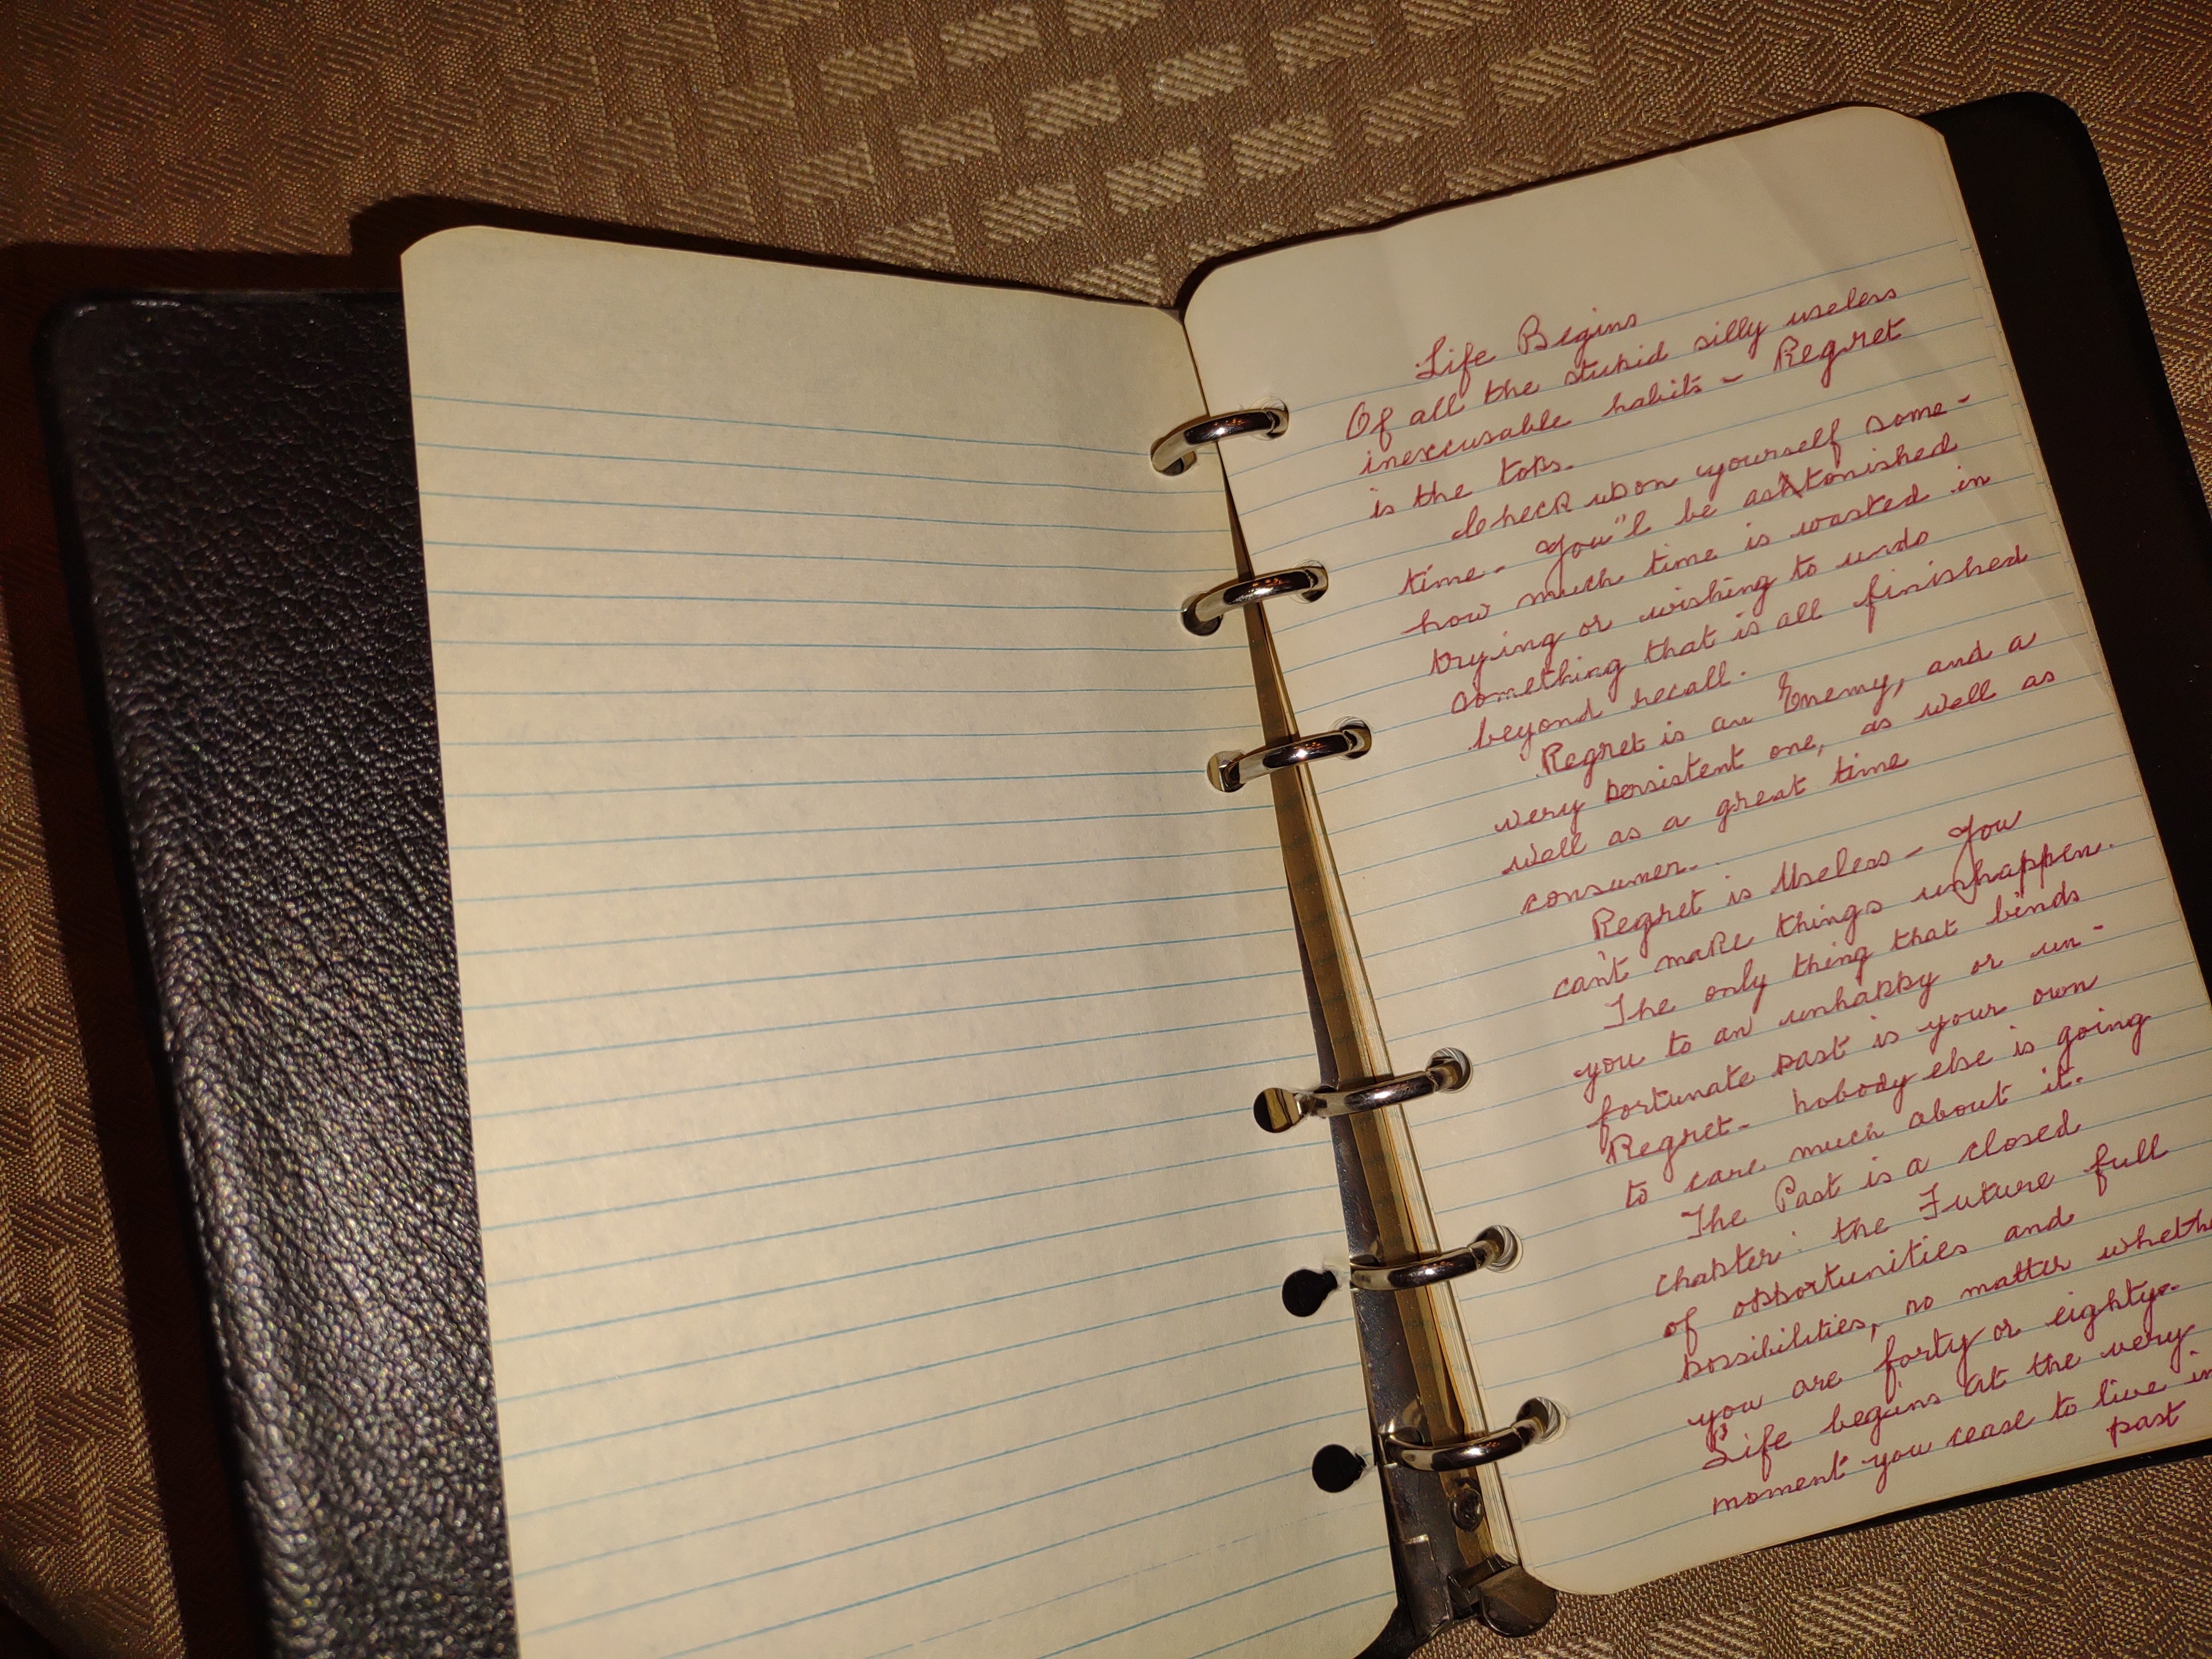 Life Begins
Of all the stupid silly useless
inexcusable habits - Regret
is the tops.
Check upon yourself some-
time - You"l be astonished
how much time is wasted in
trying or wishing to undo
something that is all finished
beyond recall.
Regret is an Enemy, and a
very persistent one, as well as
well as a great time
consumer.
Regret is Useless - You
can't make things unhappen.
The only thing that binds
you to an unhappy or un-
fortunate past is your own
Regret - nobody else is going
to care much about it.
The Past is a closed
chapter: the Future full
of opportunities and
possibilities, no matter wheth
you are forty or eighty.
Life begins at the very
moment you cease to live in
past